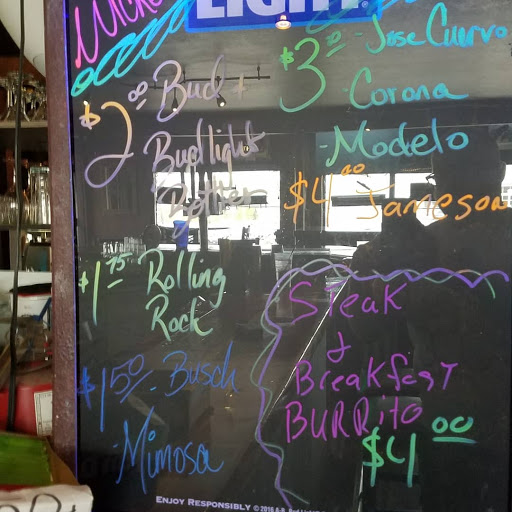 LIGHT
$2.00 Bud +
Bud light
Bottles
$3.00 - Jose Cuervo
- Corona
- Modelo
$4.00 Jameson
$1.75 Rolling
Rock
$1.50 - Busch
- Mimosa
Steak
+
Breakfast
BURRito
$4.00
ENJOY RESPONSIBLY © 2016 A-B,